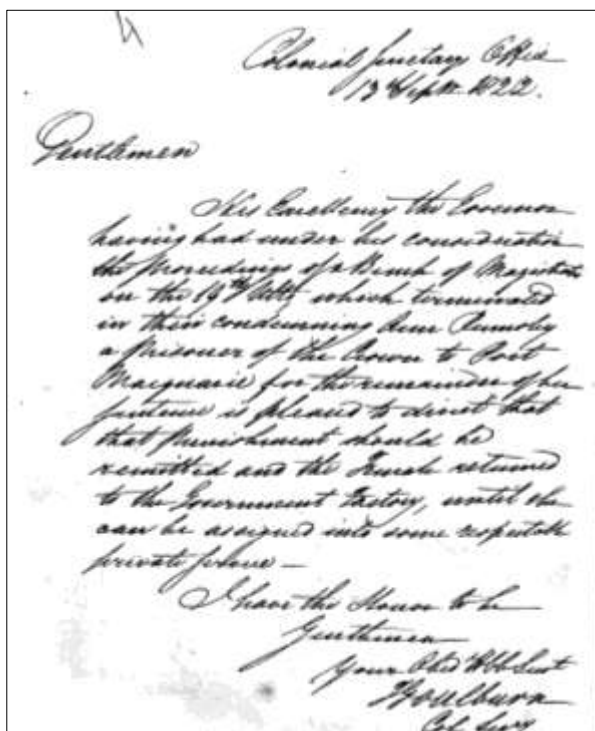 Colonial Secretary Office
13 Septr. 1822.
Gentlemen
His Excellency the Governor
having had under his consideration
the proceedings of a Bench of Magistrates
on the 19th Ulto which terminated
in their condemning Ann Rumsby
a Prisoner of the Crown to Port
Macquarie for the remainder of her
sentence is pleased to direct that
that Punishment should be
remitted and the Female returned
to the Government Factory, until she
can be assigned into some respectable
private
I have the Honor to be
Gentlemen
Your Obed Hble Servt
F Goulburn
Col. Secy